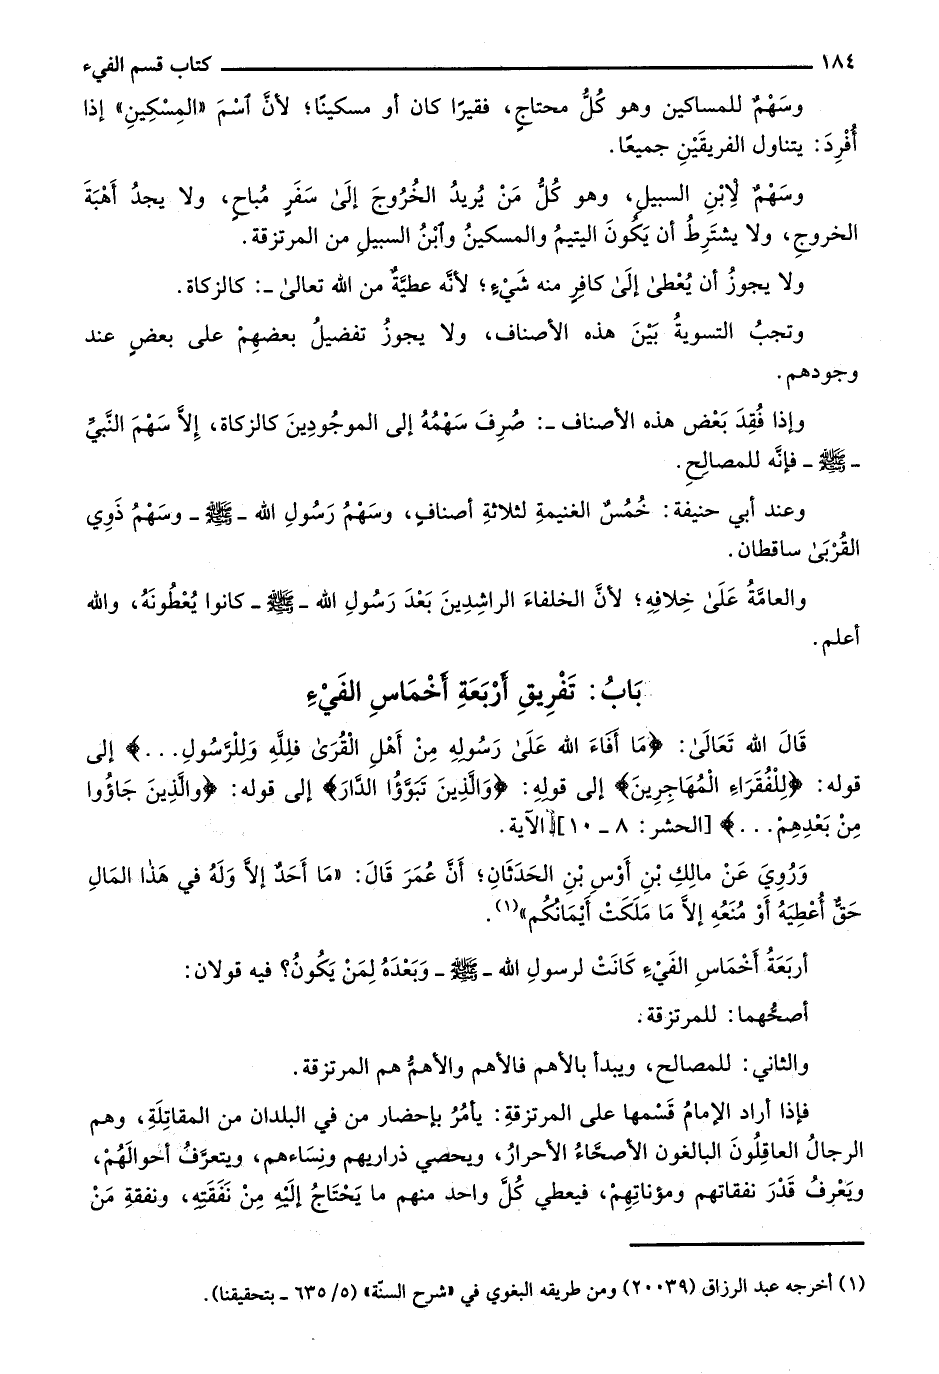 ١٨٤ كتاب قسم الفيء
وسَهْمٌ للمساكين وهو كُلُّ محتاجٍ، فقيرًا كان أو مسكينًا؛ لأنَّ ٱسْمَ «المِسْكِينِ» إذا
أُفْرِدَ: يتناول الفريقَيْنِ جميعًا.
وسَهْمٌ لِٱبْنِ السبيلِ، وهو كُلُّ مَنْ يُريدُ الخُرُوجَ إلَىٰ سَفَرٍ مُباحٍ، ولا يجدُ أُهْبَةَ
الخروجِ، ولا يشتَرِطُ أن يَكُونَ اليتيمُ والمسكينُ وٱبْنُ السبيلِ من المرتزقة.
ولا يجوزُ أن يُعْطىٰ إلَىٰ كافِرٍ منه شَيْءٍ؛ لأنَّه عطيَّةٌ من الله تعالىٰ ـ: كالزكاة.
وتجبُ التسويةُ بَيْنَ هذه الأصناف، ولا يجوزُ تفضيلُ بعضِهِمْ على بعضٍ عند
وجودهم.
وإذا فُقِدَ بَعْض هذه الأصناف ـ: صُرِفَ سَهْمُهُ إلى الموجُودِينَ كالزكاة، إلاَّ سَهْمَ النَّبيِّ
ـ ﷺ ـ فإنَّه للمصالِحِ.
وعند أبي حنيفة: خُمُسُ الغنيمةِ لثلاثةِ أصنافٍ، وسَهْمُ رَسُولِ الله ـ ﷺ ـ وسَهْمُ ذَوِي
القُرْبَىٰ ساقطان.
والعامَّةُ عَلَىٰ خِلافِهِ؛ لأنَّ الخلفاءَ الراشِدِينَ بَعْدَ رَسُولِ الله ـ ﷺ ـ كانوا يُعْطُونَهُ، والله
أعلم.
بَابُ: تَفْرِيقِ أَرْبَعَةِ أَخْمَاسِ الفَيْءِ
قَالَ الله تَعَالَىٰ: ﴿مَا أَفَاءَ الله عَلَىٰ رَسُولِهِ مِنْ أَهْلِ الْقُرَىٰ فلِلَّهِ وَلِلْرَّسُولِ...﴾ إلى
قوله: ﴿لِلْفُقَرَاءِ الْمُهَاجِرِينَ﴾ إلى قولِهِ: ﴿وَالَّذِينَ تَبَوَّؤُا الدَّارَ﴾ إلى قوله: ﴿والَّذِينَ جَاؤُوا
مِنْ بَعْدِهِمْ...﴾ [الحشر: ٨ ـ ١٠] الآية.
وَرُوِيَ عَنْ مالِكِ بْنِ أَوْسِ بْنِ الحَدَثَانِ؛ أَنَّ عُمَرَ قَالَ: «مَا أَحَدٌ إلاَّ وَلَهُ في هَذَا المَالِ
حَقٌّ أُعْطِيَهُ أَوْ مُنَعُهِ إلاَّ مَا مَلَكَتْ أَيْمَانُكُم»(١).
أربَعَةُ أَخْمَاسِ الفَيْءِ كَانَتْ لرسولِ الله ـ ﷺ ـ وَبَعْدَهُ لِمَنْ يَكُونُ؟ فيه قولان:
أصحُّهما: للمرتزقة.
والثاني: للمصالح، ويبدأ بالأهم فالأهم والأهمُّ هم المرتزقة.
فإذا أراد الإمامُ قَسْمها على المرتزقةِ: يأمُرُ بإحضار من في البلدان من المقاتِلَةِ، وهم
الرجالُ العاقِلُونَ البالغون الأصحَّاءُ الأحرارُ، ويحصي ذراريهم ونِسَاءهم، ويتعرَّفُ أحوالَهُمْ،
ويَعْرِفُ قَدْرَ نفقاتهم ومؤناتِهِمْ، فيعطي كُلَّ واحد منهم ما يَحْتَاجُ إلَيْهِ مِنْ نَفَقَتِهِ، ونفقةِ مَنْ
(١) أخرجه عبد الرزاق (٢٠٠٣٩) ومن طريقه البغوي في «شرح السنّة» (٥/ ٦٣٥ ـ بتحقيقنا).